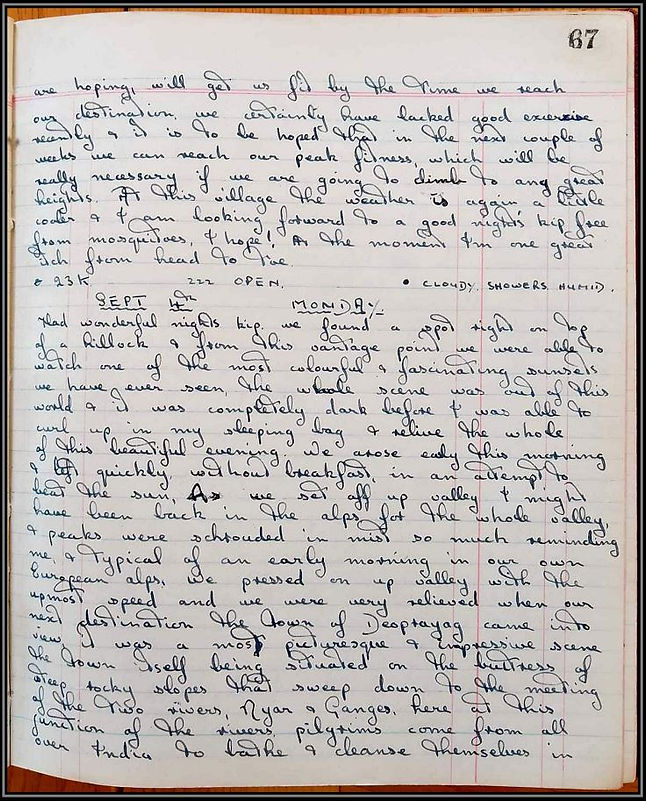 67
are hoping, will get us fit by the time we reach
our destination, we certainly have lacked good exercise
recently & it is to be hoped that in the next couple of
weeks we can reach our peak fitness, which will be
really necessary if we are going to climb to any great
heights. At this village the weather is again a little
cooler & I am looking forward to a good night's kip, free
from mosquitoes, I hope! At the moment I'm one great
itch from head to toe.
23K 222 OPEN. • CLOUDY. SHOWERS. HUMID.
SEPT 4th MONDAY
Had wonderful nights kip, we found a spot right on top
of a hillock & from this vantage point we were able to
watch one of the most colourful & fascinating sunsets
we have ever seen, the whole scene was out of this
world & it was completely dark before I was able to
curl up in my sleeping bag & relive the whole
of this beautiful evening. We arose early this morning
& left quickly, without breakfast, in an attempt to
beat the sun, As we set off up valley I might
have been back in the alps, for the whole valley,
& peaks were schrouded in mist so much reminding
me, & typical of an early morning in our own
European alps. We pressed on up valley with the
upmost speed and we were very relieved when our
next destination the town of Deoprayag came into
view, it was a most picturesque & impressive scene
the town itself being situated on the buttress of
steep rocky slopes that sweep down to the meeting
of the two rivers, Nyar & Ganges, here at this
junction of the rivers, pilgrims come from all
over India to bathe & cleanse themselves in